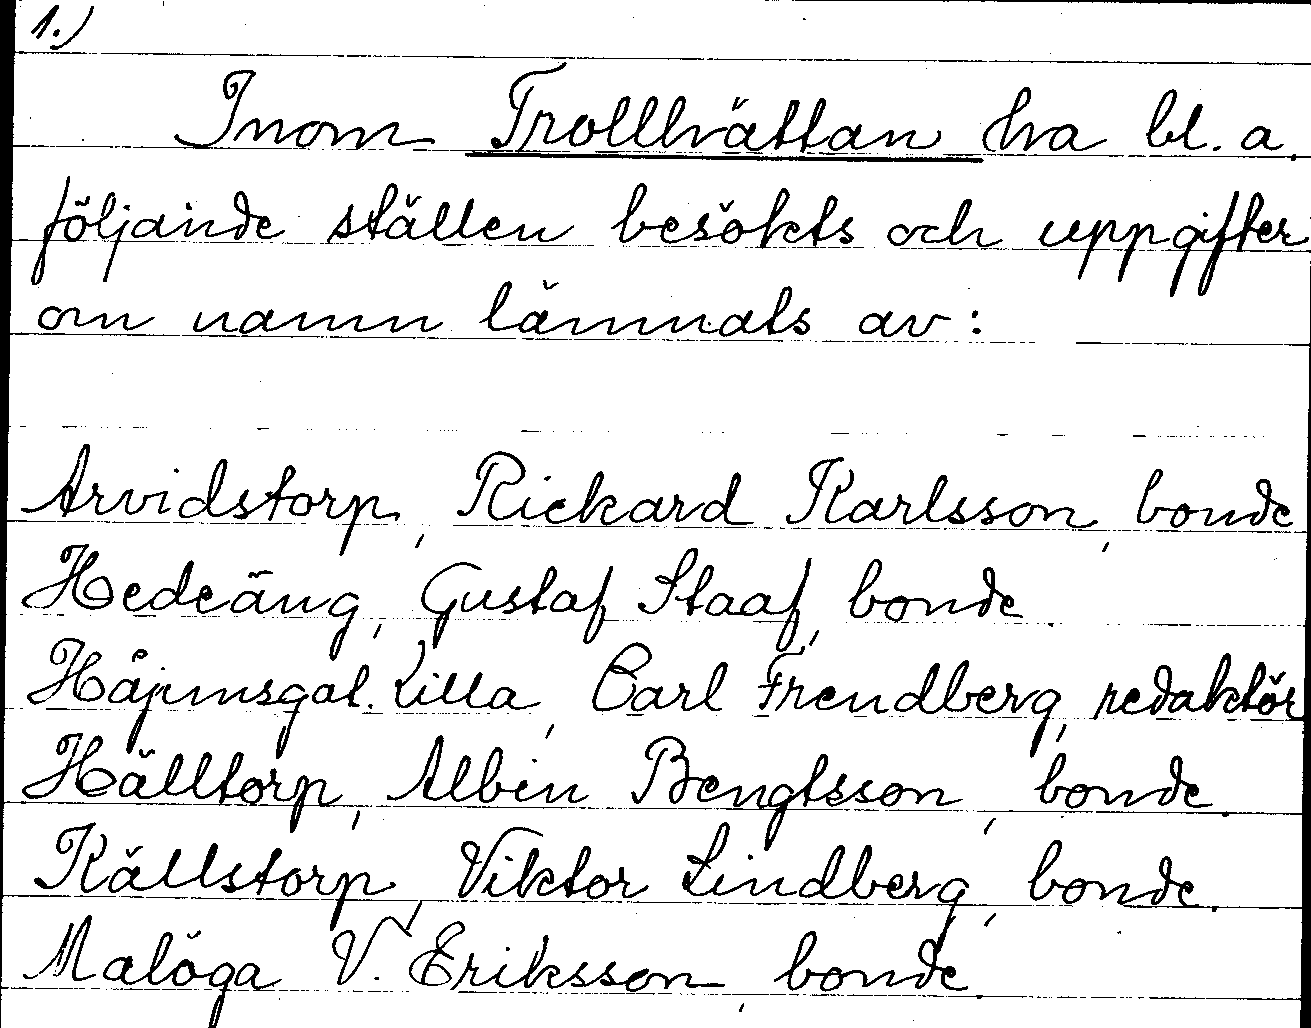 1.)
Inom Trollhättan ha bl. a.
följande ställen besökts och uppgifter
om namn lämnats av:
Arvidstorp, Rickard Karlsson, bonde
Hedeäng, Gustaf Staaf, bonde.
Håjumsgat. Lilla, Carl Frendberg, redaktör
Hälltorp, Albin Bengtsson, bonde.
Källstorp, Viktor Lindberg, bonde.
Malöga, V. Eriksson, bonde.